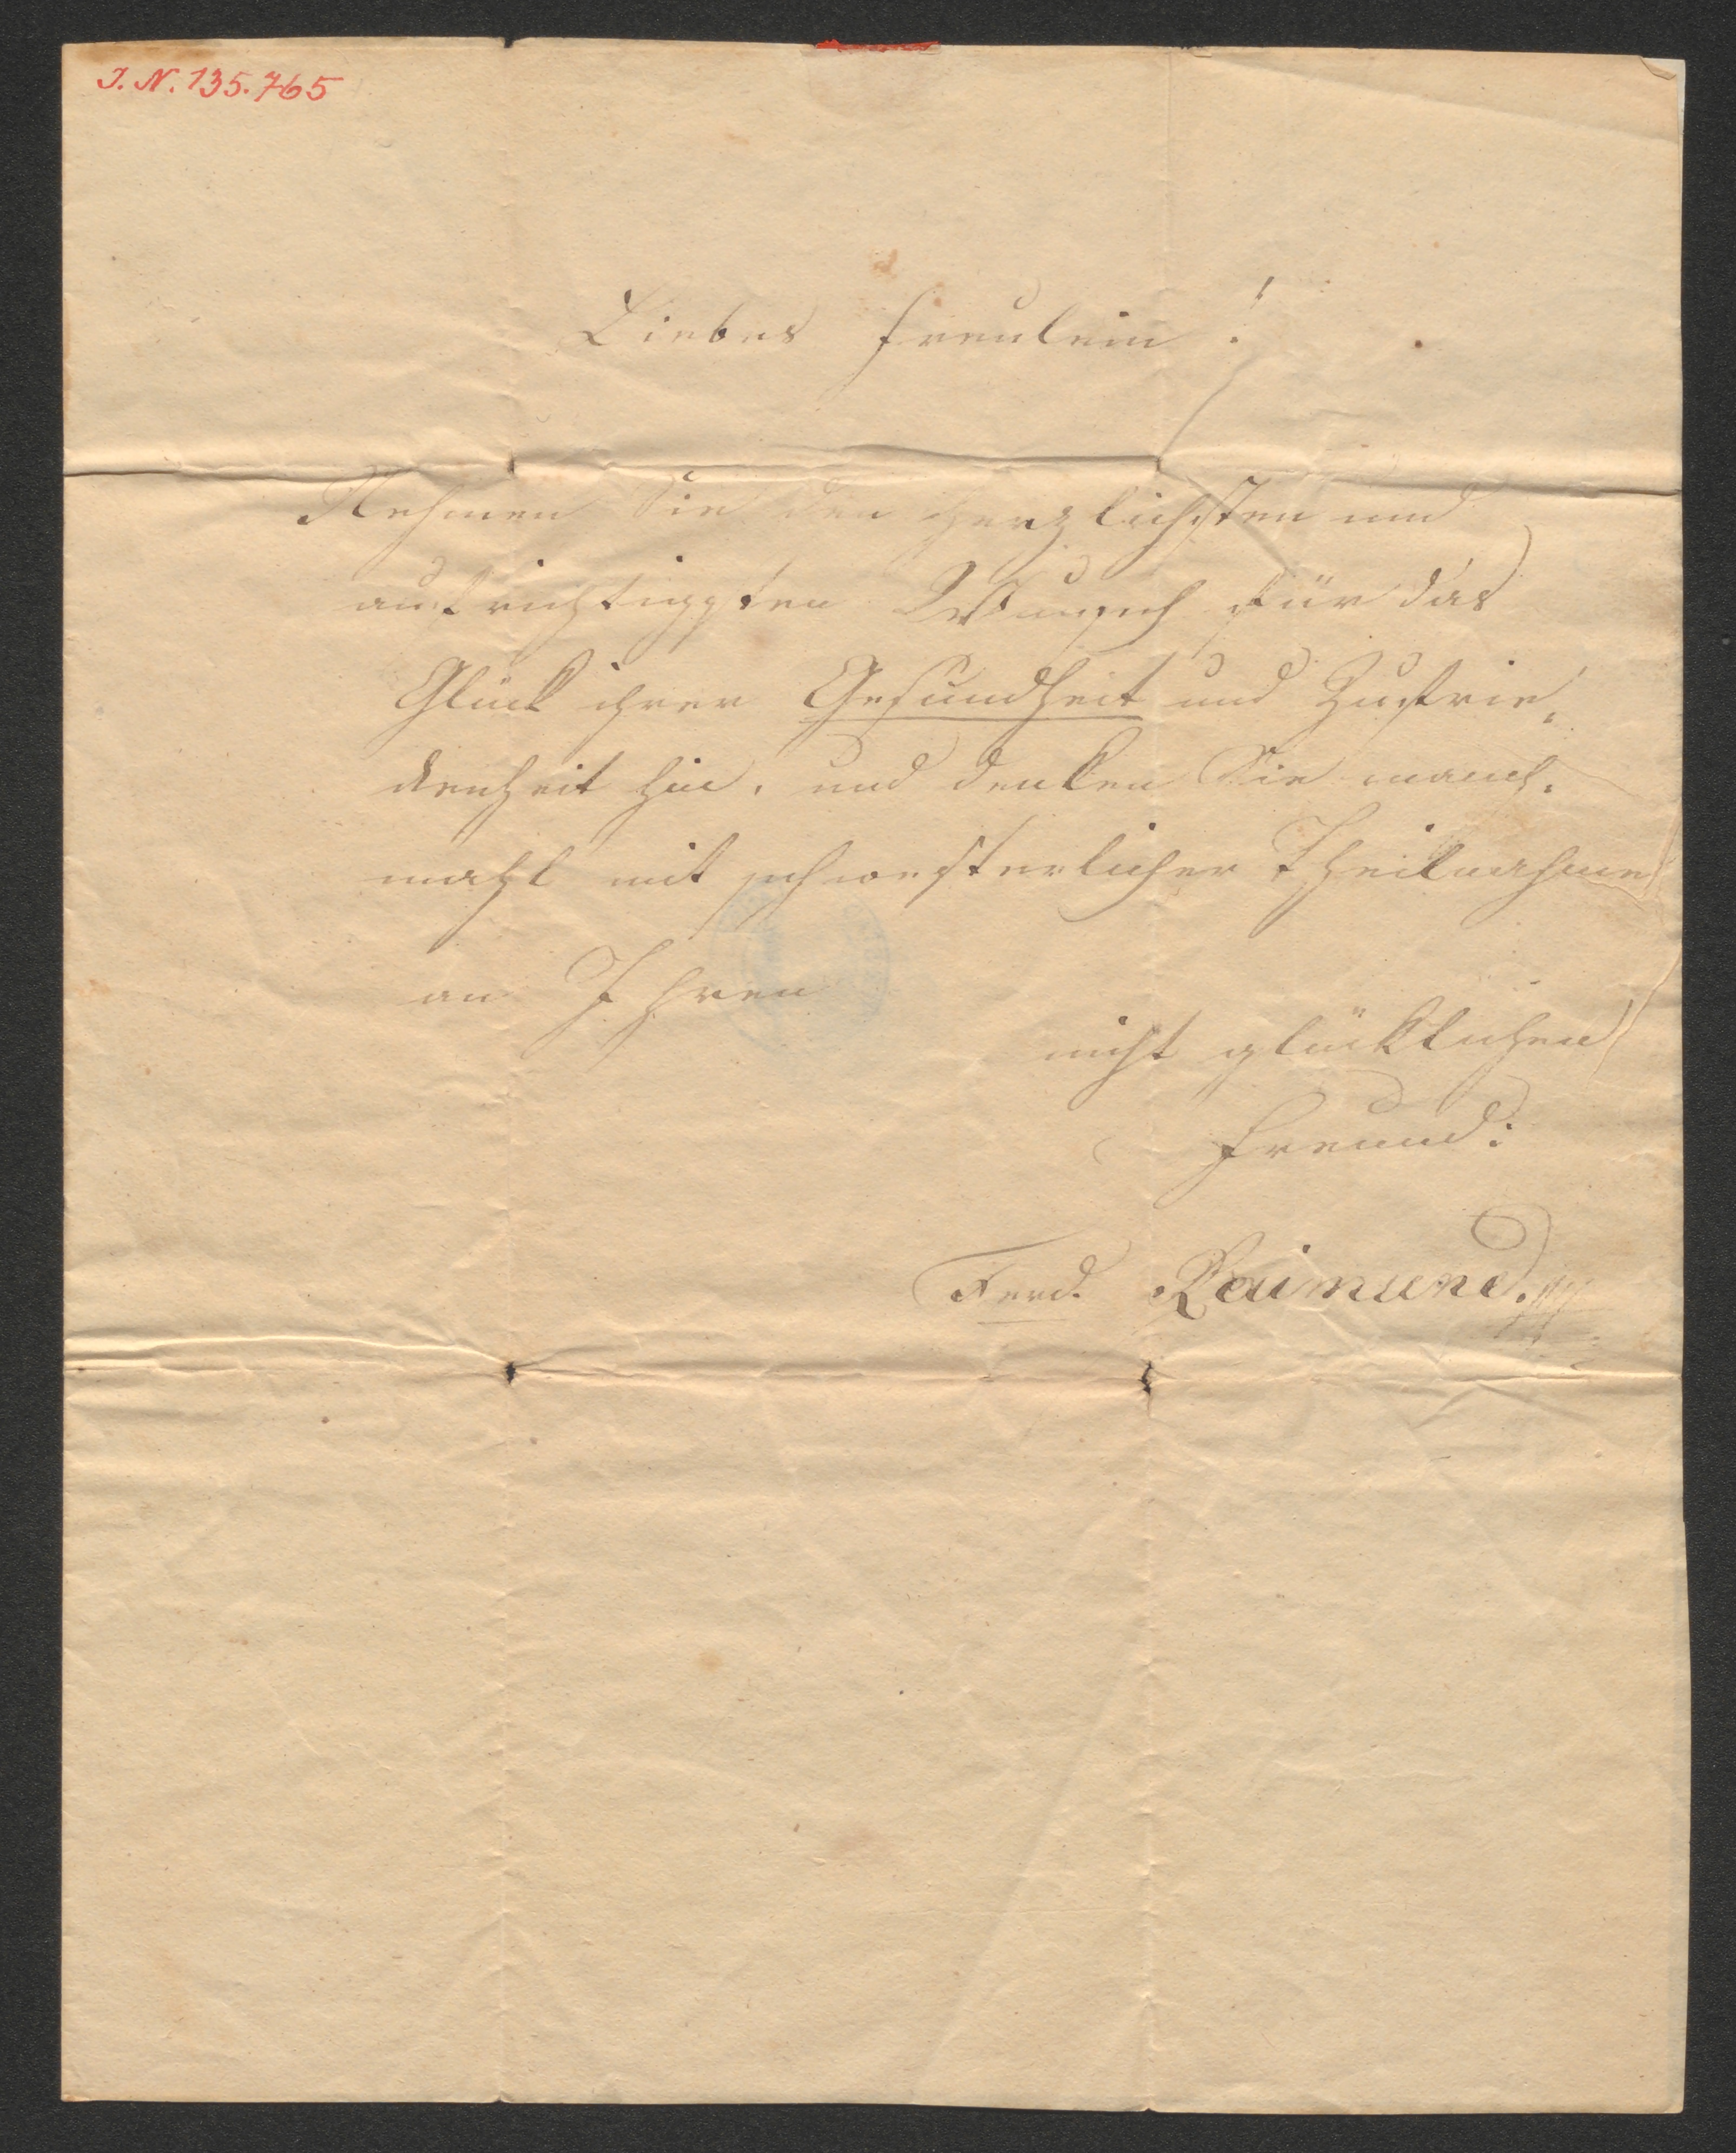 I. N. 135.765
Liebes Freulein!
Nehmen Sie den herzlichsten und
aufrichtigsten Wunsch für das
Glück ihrer Gesundheit und Zufrie,
denheit hin, und denken Sie manch,
mahl mit schwesterlicher Theilnahme
an Ihren
nicht glücklichen
Freund:
Ferd. Raimund.